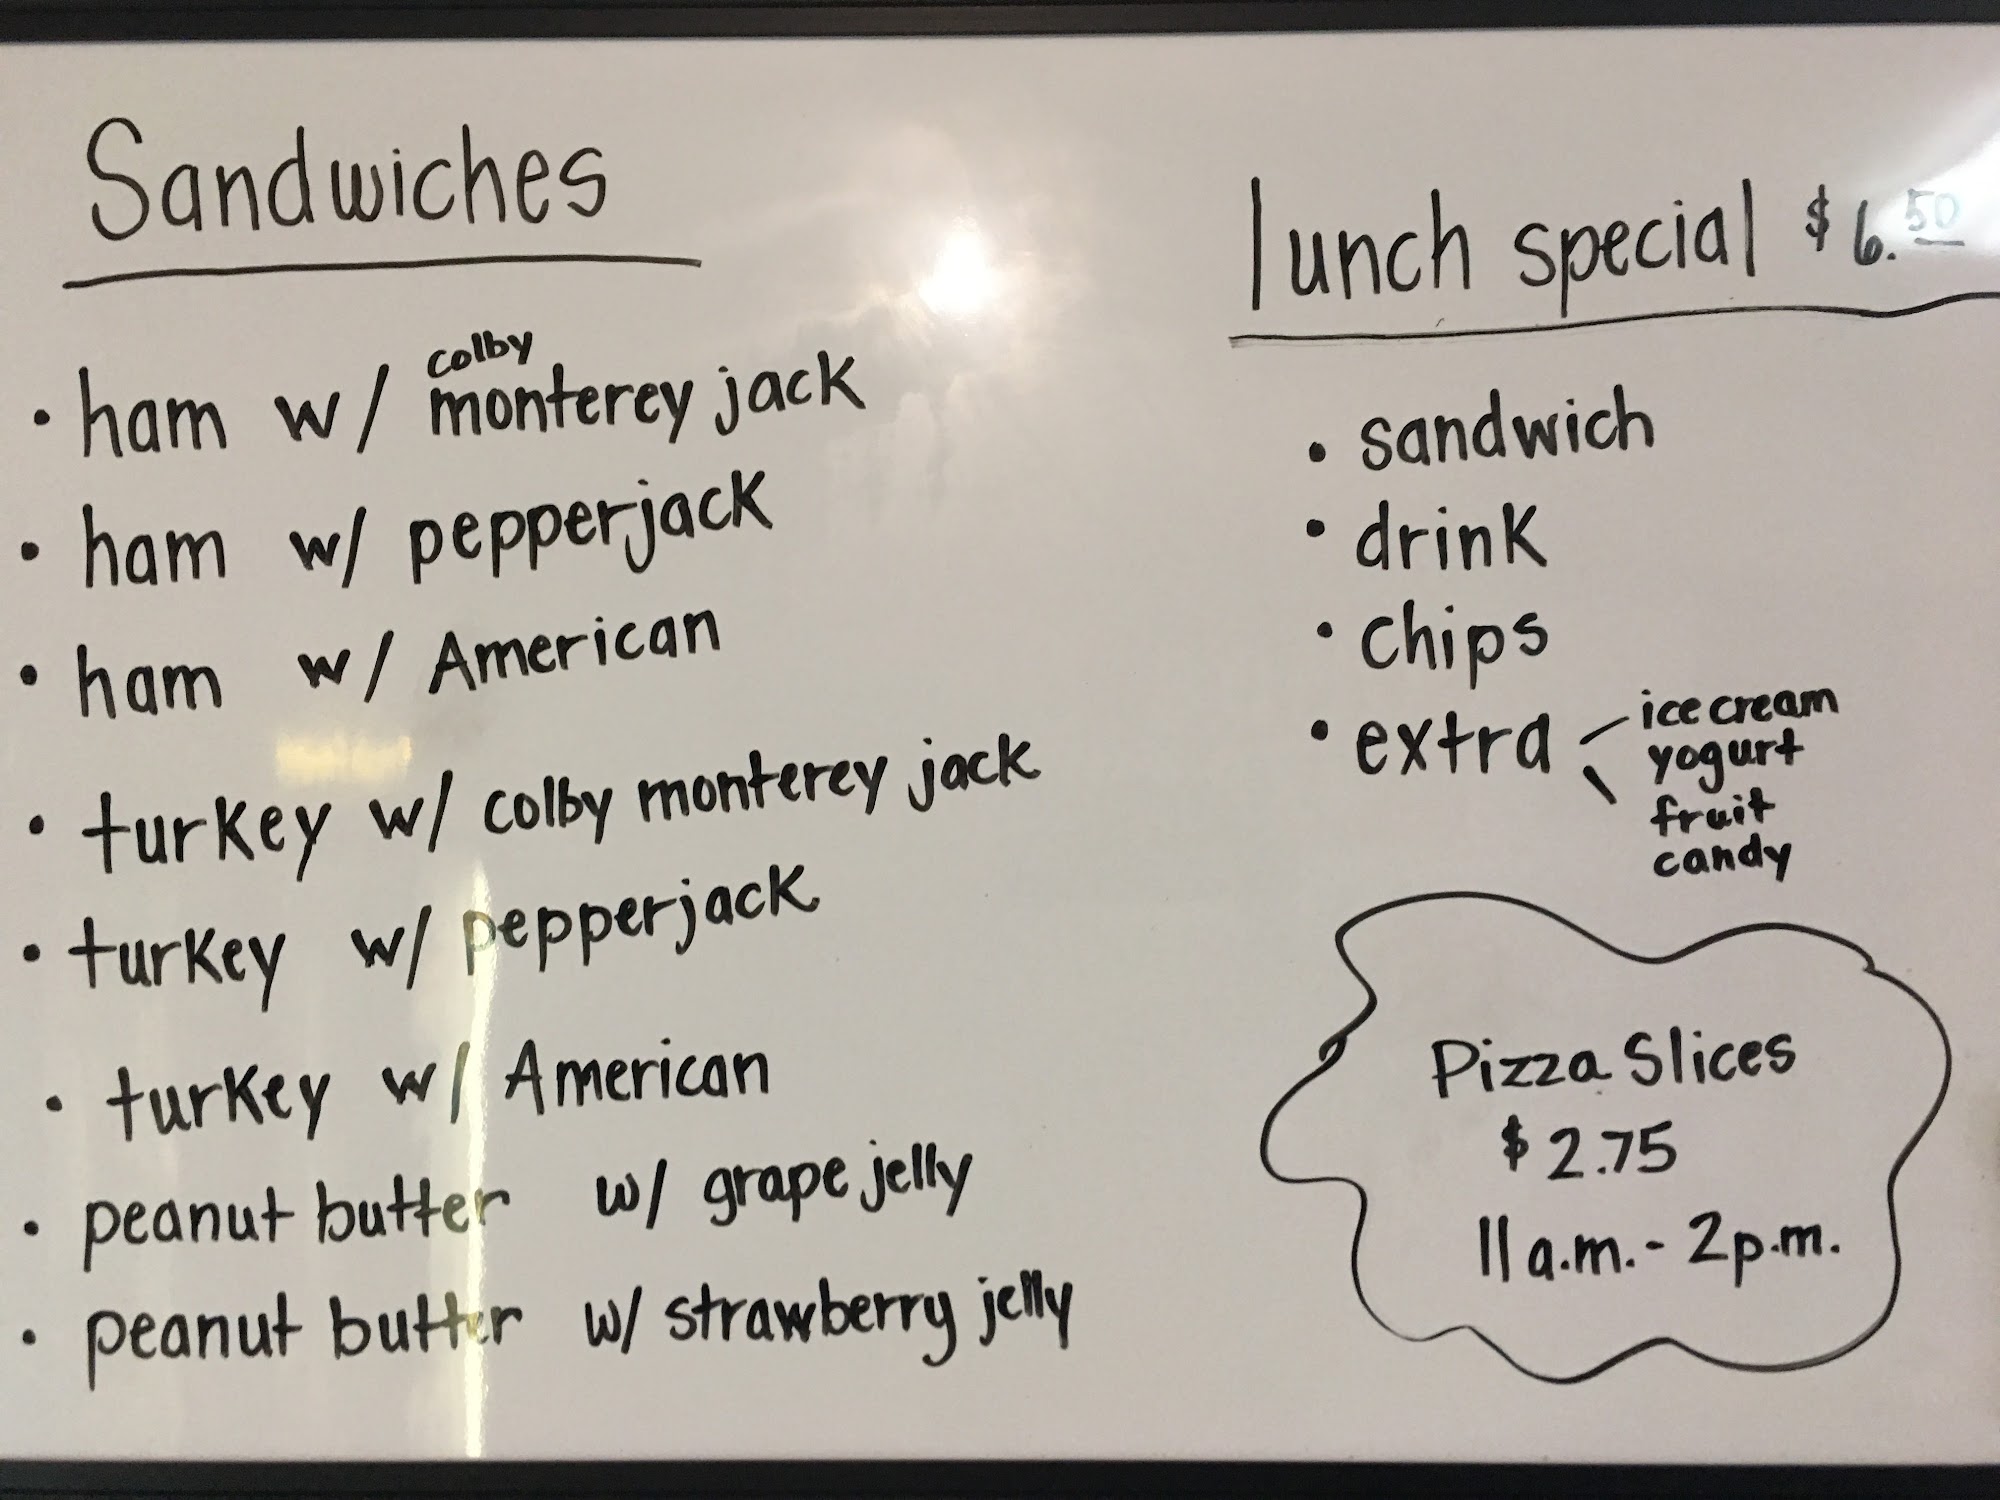 Sandwiches
• ham w/ colby monterey jack
• ham w/ pepperjack
• ham w/ American
• turkey w/ colby monterey jack
• turkey w/ pepperjack
• turkey w/ American
• peanut butter w/ grape jelly
• peanut butter w/ strawberry jelly
lunch special $6.50
• sandwich
• drink
• chips
• extra
ice cream
yogurt
fruit
candy
Pizza Slices
$2.75
11 a.m. - 2 p.m.